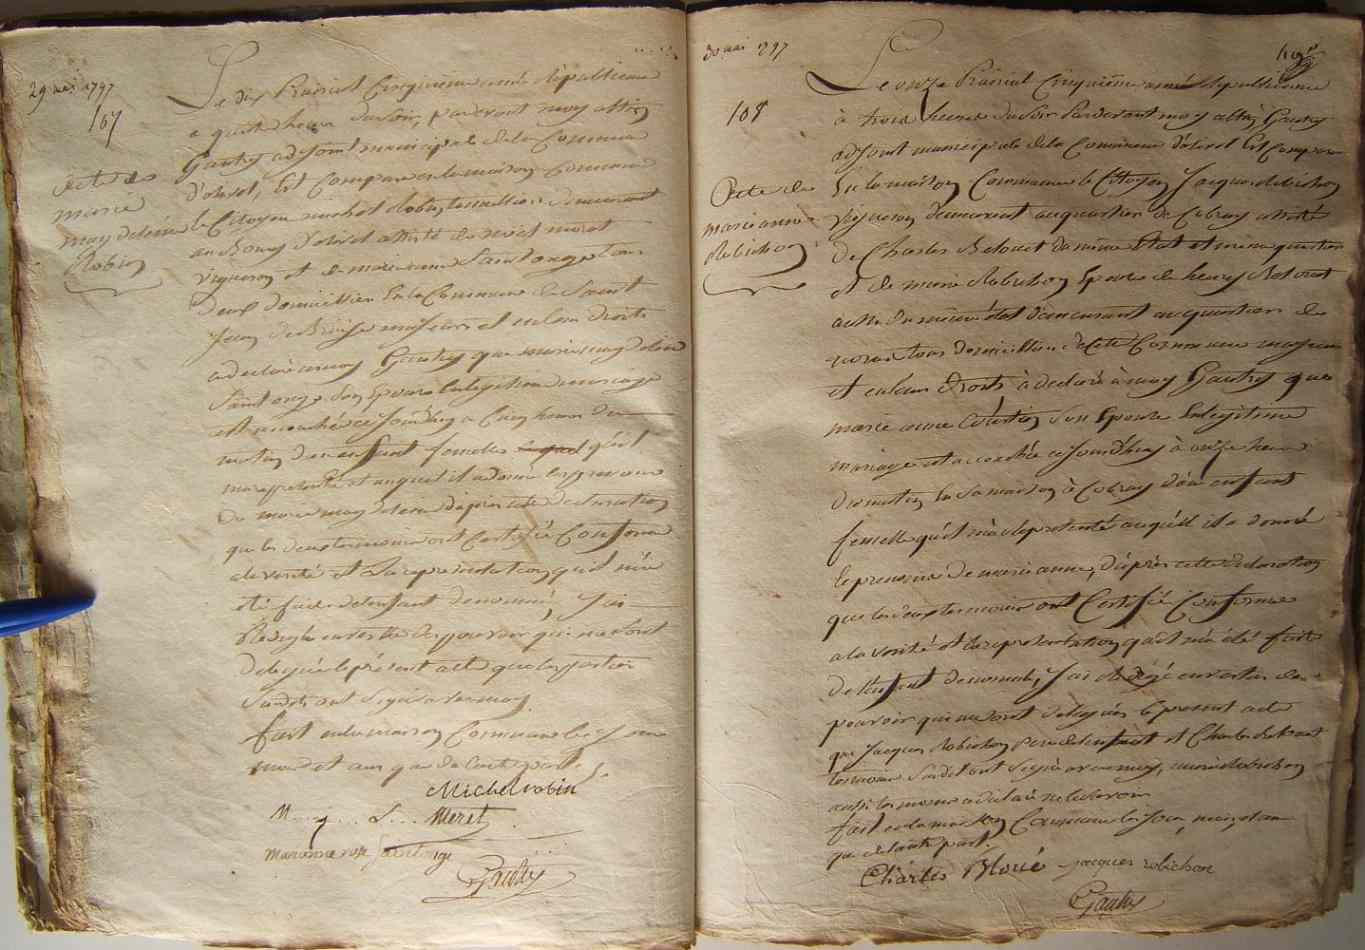 29 mai 1797
107
acte de
marie
magdeleine
Robin
Le dix Prairial Cinquième année Républicaine
a quatre heures du soir, pardevant moy albin
Gautry adjoint municipal de la Commune
d'olivet, Est Comparu en la maison Commune
le Citoyen michel Robin tonnellier demeurant
au Bourg d'olivet assisté de moret
vigneron et de marianne Saintonge tous
Deux domicilliés En la Commune de Saint
jean de Braise majeurs et en leurs droits
a declaré a moy Gautry que marie magdelaine
Saintonge son Epouse En legitime mariage
est accouchée ce jourd'huy a Cinq heures du
matin d'un enfant femelle qu'il
m'a représenté et auquel il a donné les prenoms
De marie magdeleine d'après cette declaration
que les deux temoins ont Certifié Conforme
a la verité et la représentation qui m'a
été faite de l'enfant denommé, j'ai
Rédigé en vertu des pouvoirs qui me sont
Delegués le présent acte que les parties
Susdits ont signé avec moy
fait en la maison Commune les jour
mois et an que de l'autre part.
Michel robin
M L Meret
marianne rose saintonge
Gautry
30 mai 1797
108
Acte de
marieanne
Robichon
Le onze Prairial Cinquième année Républicaine
à trois heures du soir Pardevant moy albin Gautry
adjoint municipal de la Commune d'olivet Est Comparu
En la maison Commune le Citoyen Jacques Robichon
vigneron demeurant au quartier de Cobray assisté
de Charles Relouet du même Etat et même quartier
et de marie Robichon Epouse de henry Relouet
aussi du même état demeurant au quartier de
tous domicilliés de cette Commune majeurs
et en leurs droits à declaré à moy Gautry que
marie anne son Epouse En legitime
mariage est accouchée ce jourd'huy à onze heures
du matin En sa maison à Cobray d'un enfant
femelle qu'il m'a représenté auquel il a donné
le prenom de marieanne, d'après cette declaration
que les deux temoins ont Certifié Conforme
a la verité et la représentation qui m'a été faite
De l'Enfant denommé, j'ai Rédigé en vertu des
pouvoirs qui me sont delegués le présent acte
que Jacques Robichon pere de l'enfant et Charles Relouet
temoin susdit ont signé avec moy, marie Robichon
aussi temoin a declaré ne le savoir
fait en la maison Commune les jour, mois, et an
que de l'autre part.
Charles Rloué jacques robichon
Gautry